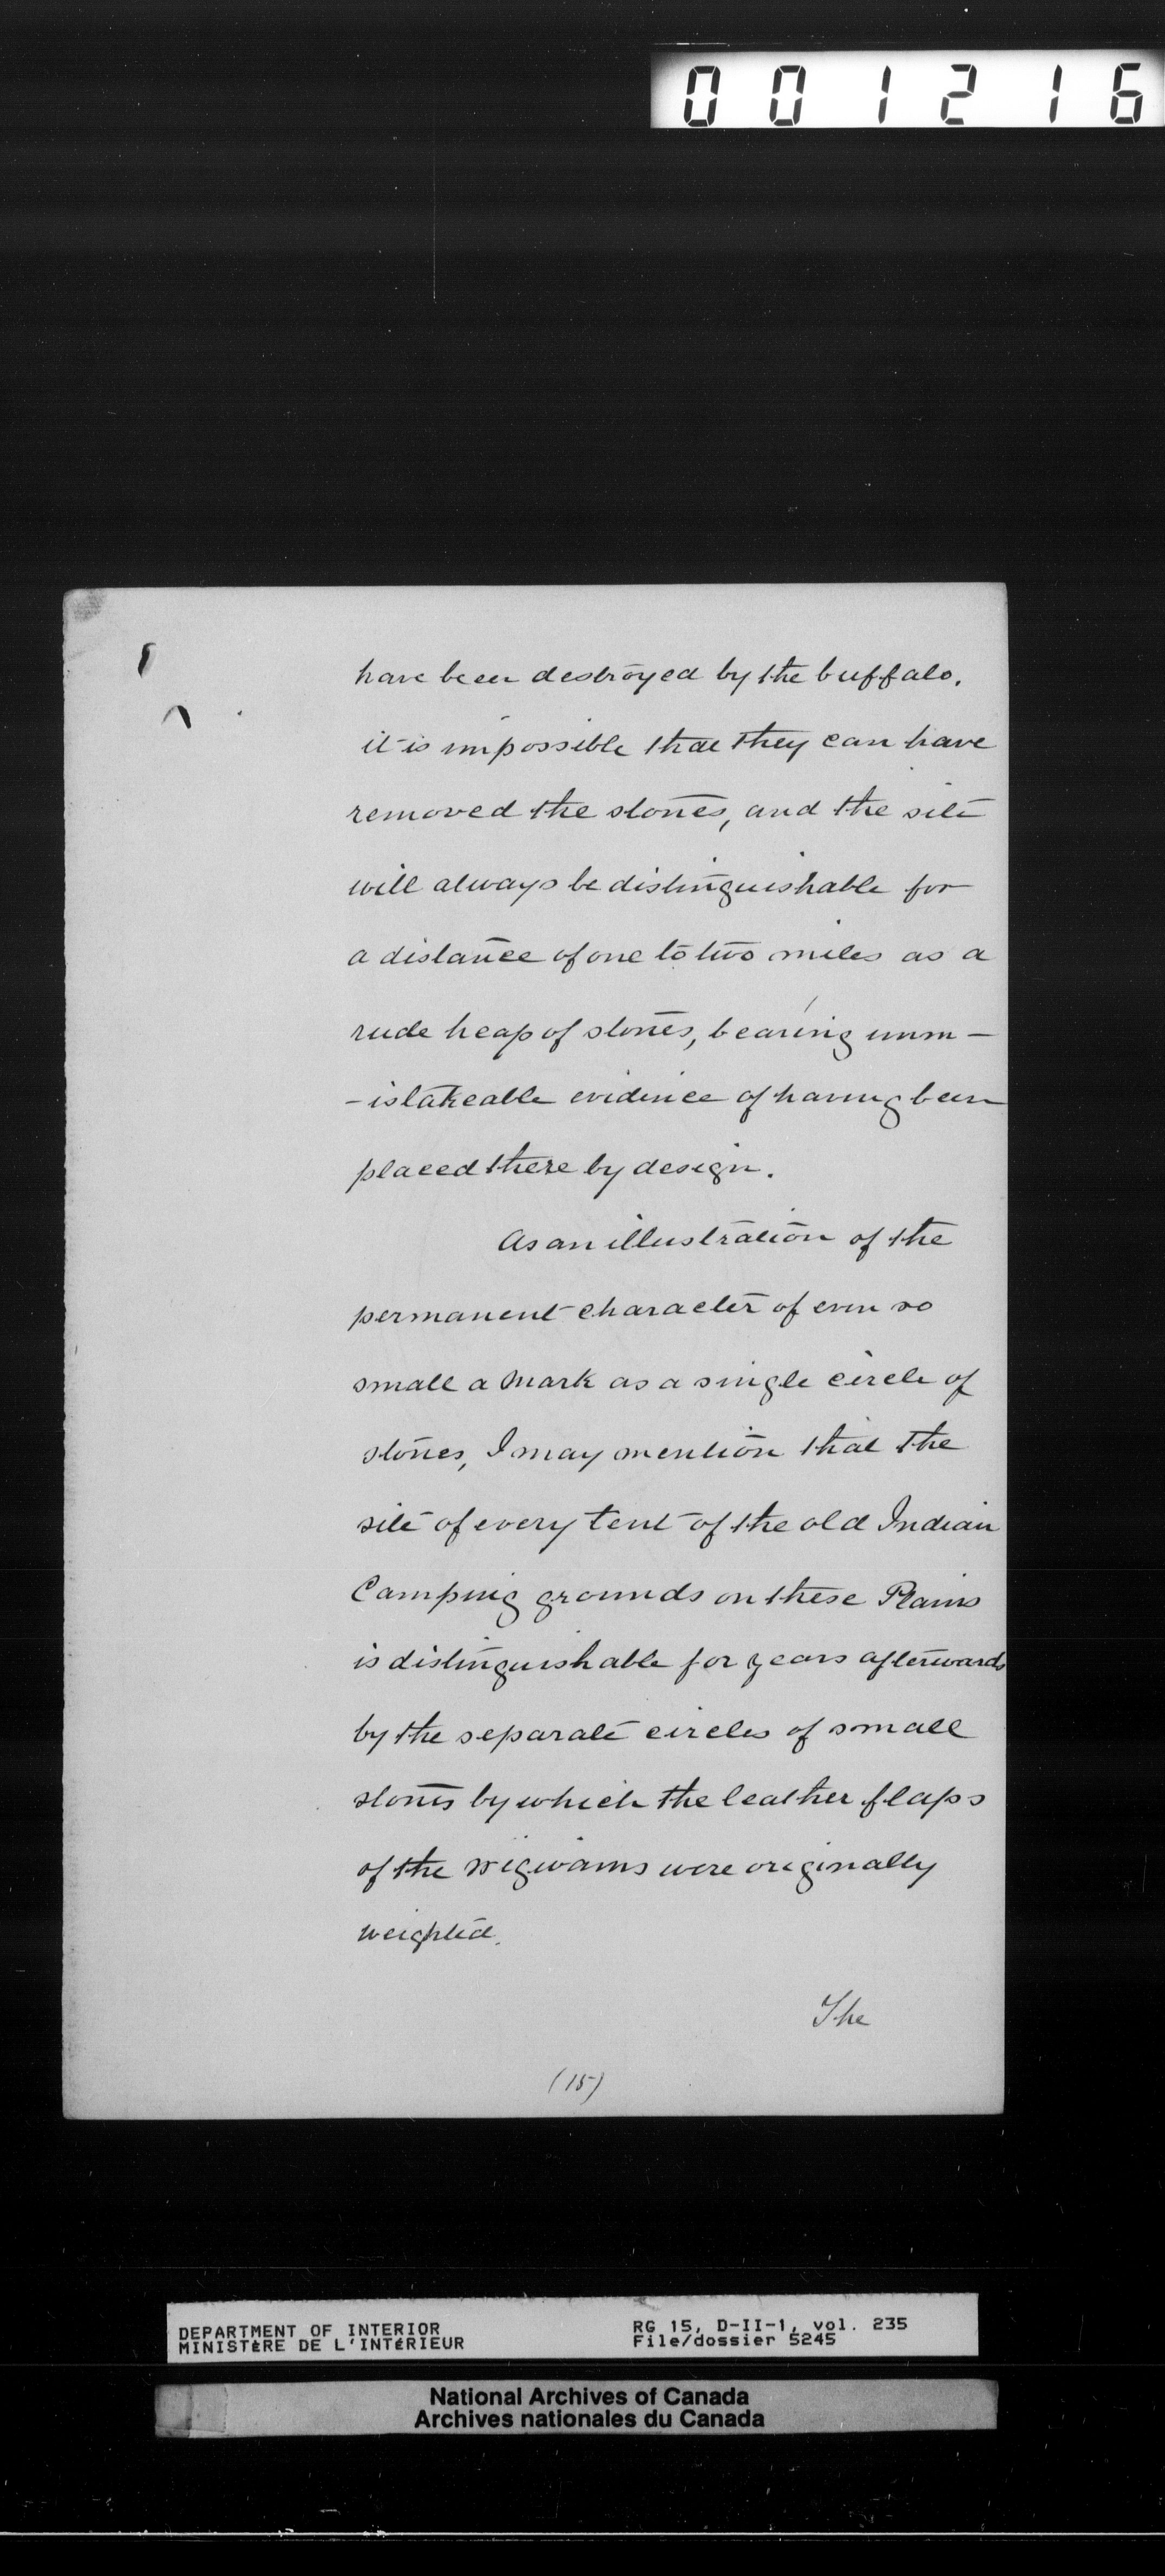 001216
have been destroyed by the buffalo.
it is impossible that they can have
removed the stones, and the site
will always be distinguishable for
a distance of one to two miles as a
rude heap of stones, bearing unm-
-istakeable evidence of having been
placed there by design.
As an illustration of the
permanent character of even so
small a mark as a single circle of
stones, I may mention that the
site of every tent of the old Indian
Camping grounds on these Plains
is distinguishable for years afterwards
by the separate circles of small
stones by which the leather flaps
of the wigwams were originally
weighted.
The
(15)
DEPARTMENT OF INTERIOR
MINISTÈRE DE L'INTÉRIEUR
RG 15, D-II-1, vol. 235
File/dossier 5245
National Archives of Canada
Archives nationales du Canada